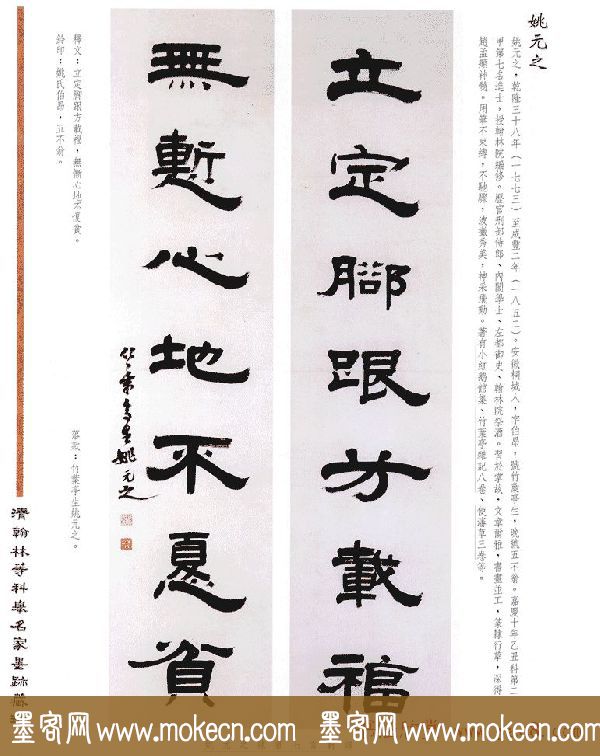 姚元之
姚元之，乾隆三十八年（一七七三）至咸豐二年（一八五二）。安徽桐城人，字伯昂，號竹葉亭生，晚號五不翁。嘉慶十年乙丑科第二
甲第七名進士，授翰林院編修。歷官刑部侍郎、內閣學士、左都御史、翰林院祭酒。習於掌故，文章爾雅，書畫並工，篆隸行草，深得
趙孟頫神髓。用筆不束縛，不馳驟，波磔秀美，神采飛動。著有小紅鵝館集、竹葉亭雜記八卷、使瀋草三卷等。
立定腳跟方載福
無慙心地不憂貧
竹葉亭生姚元之
釋文：立定腳跟方載福，無慚心地不憂貧。
落款：竹葉亭生姚元之。
鈐印：姚氏伯昂，五不翁。
清翰林等科舉名家墨跡
墨客网 www.mokecn.com 墨客网 www.mokecn.com